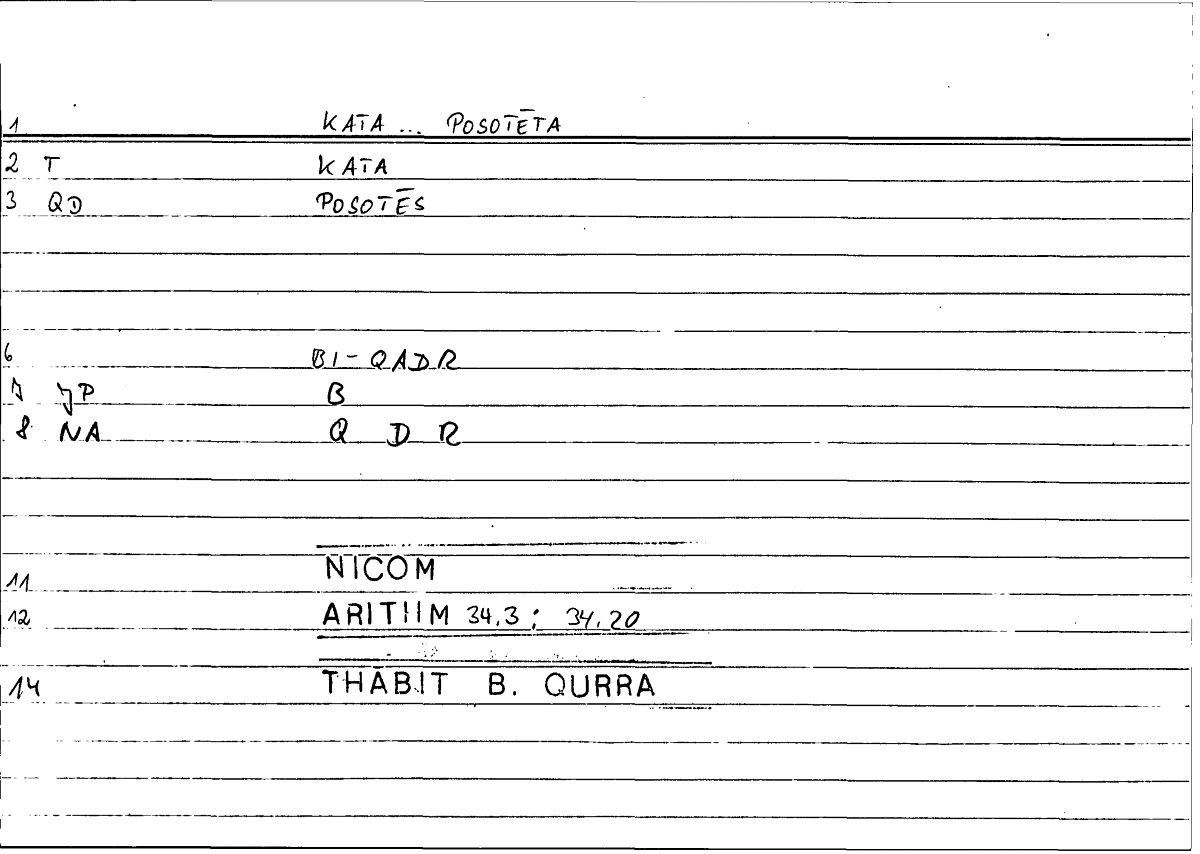 1 KATA ... POSOTĒTA
2 T KATA
3 QD POSOTĒS
6 BI-QADR
7 JP B
8 NA Q D R
11 NICOM
12 ARITHM 34.3; 34.20
14 THĀBIT B. QURRA